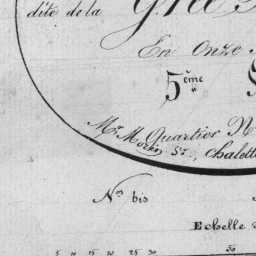 dite de la
En Onze
5ème
Mr Morin
Quartier N
St
chalett
Nos bis
Echelle
5 10 15 20 25 30
50